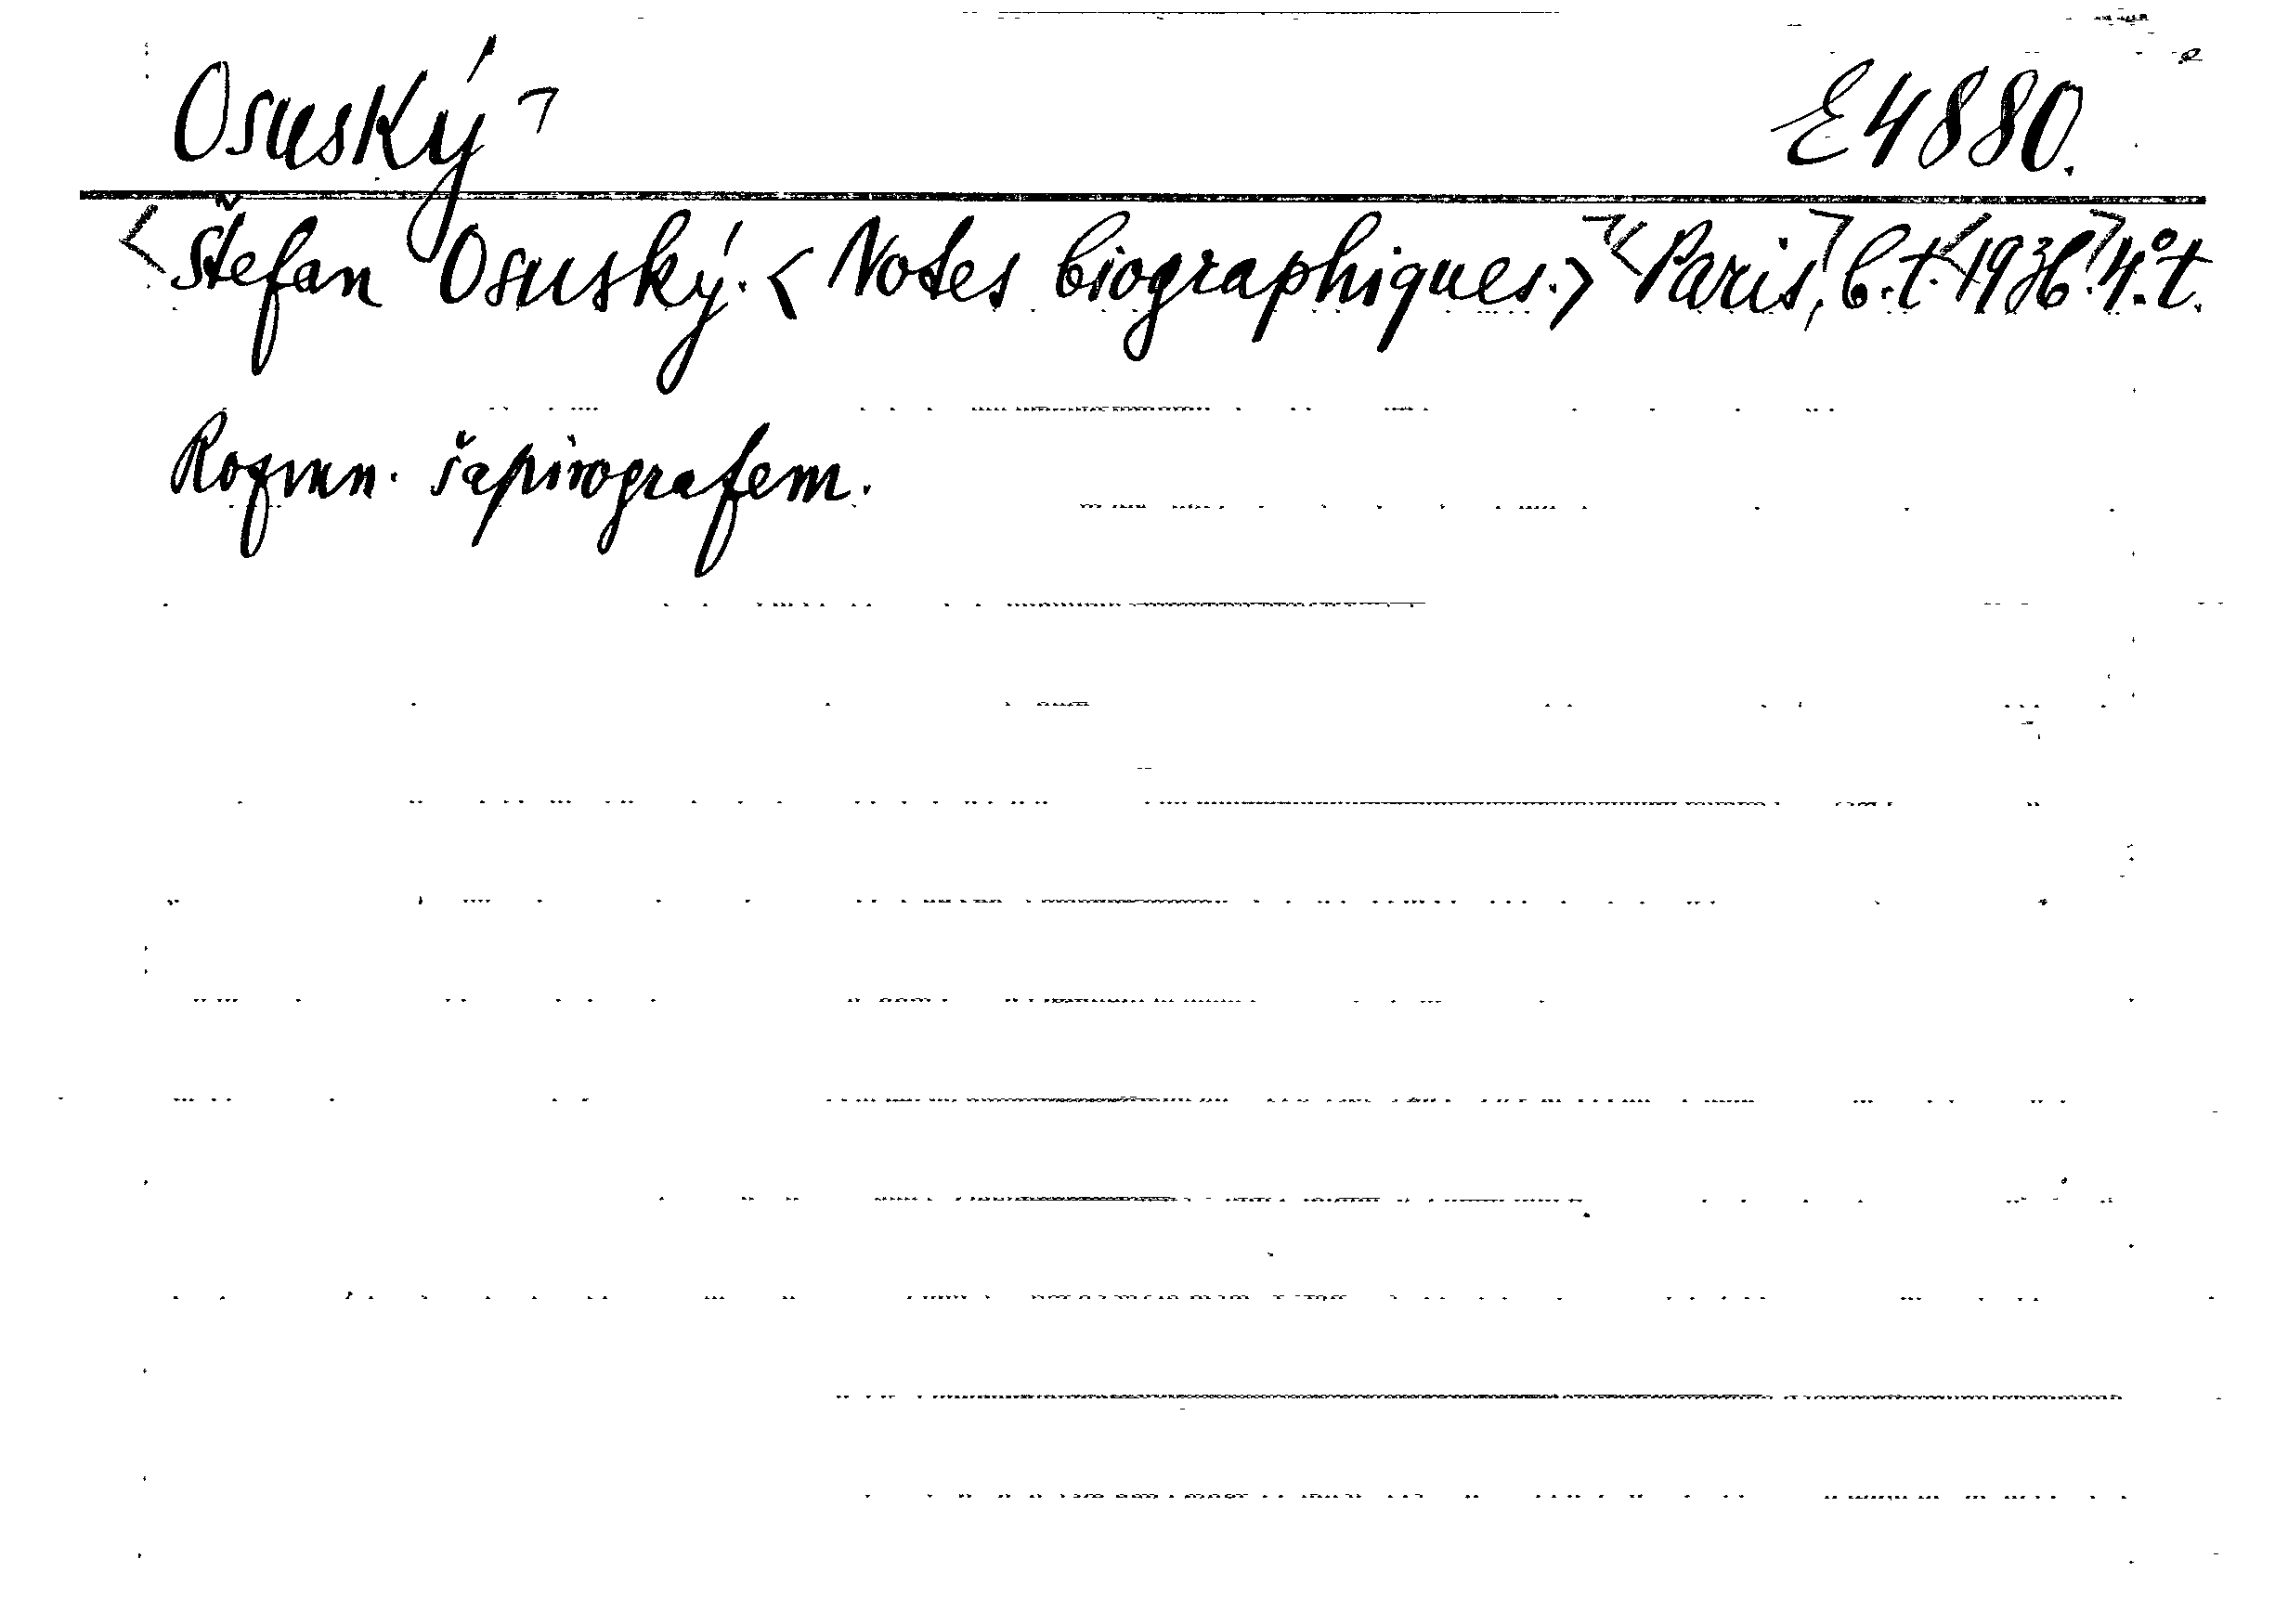 Osuský ¬ E 4880.
<Štefan Osuský. <Notes biographiques.>¬ <Paris,¬ b.t. <1936.¬ 4.° t.
Rozmn. šapirografem.